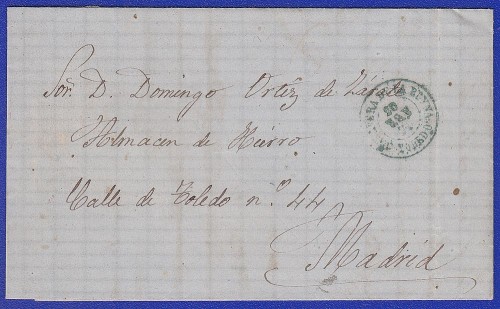 Sor. D. Domingo Ortiz de Zárate
Almacen de Hierro
Calle de Toledo n.º 44
Madrid